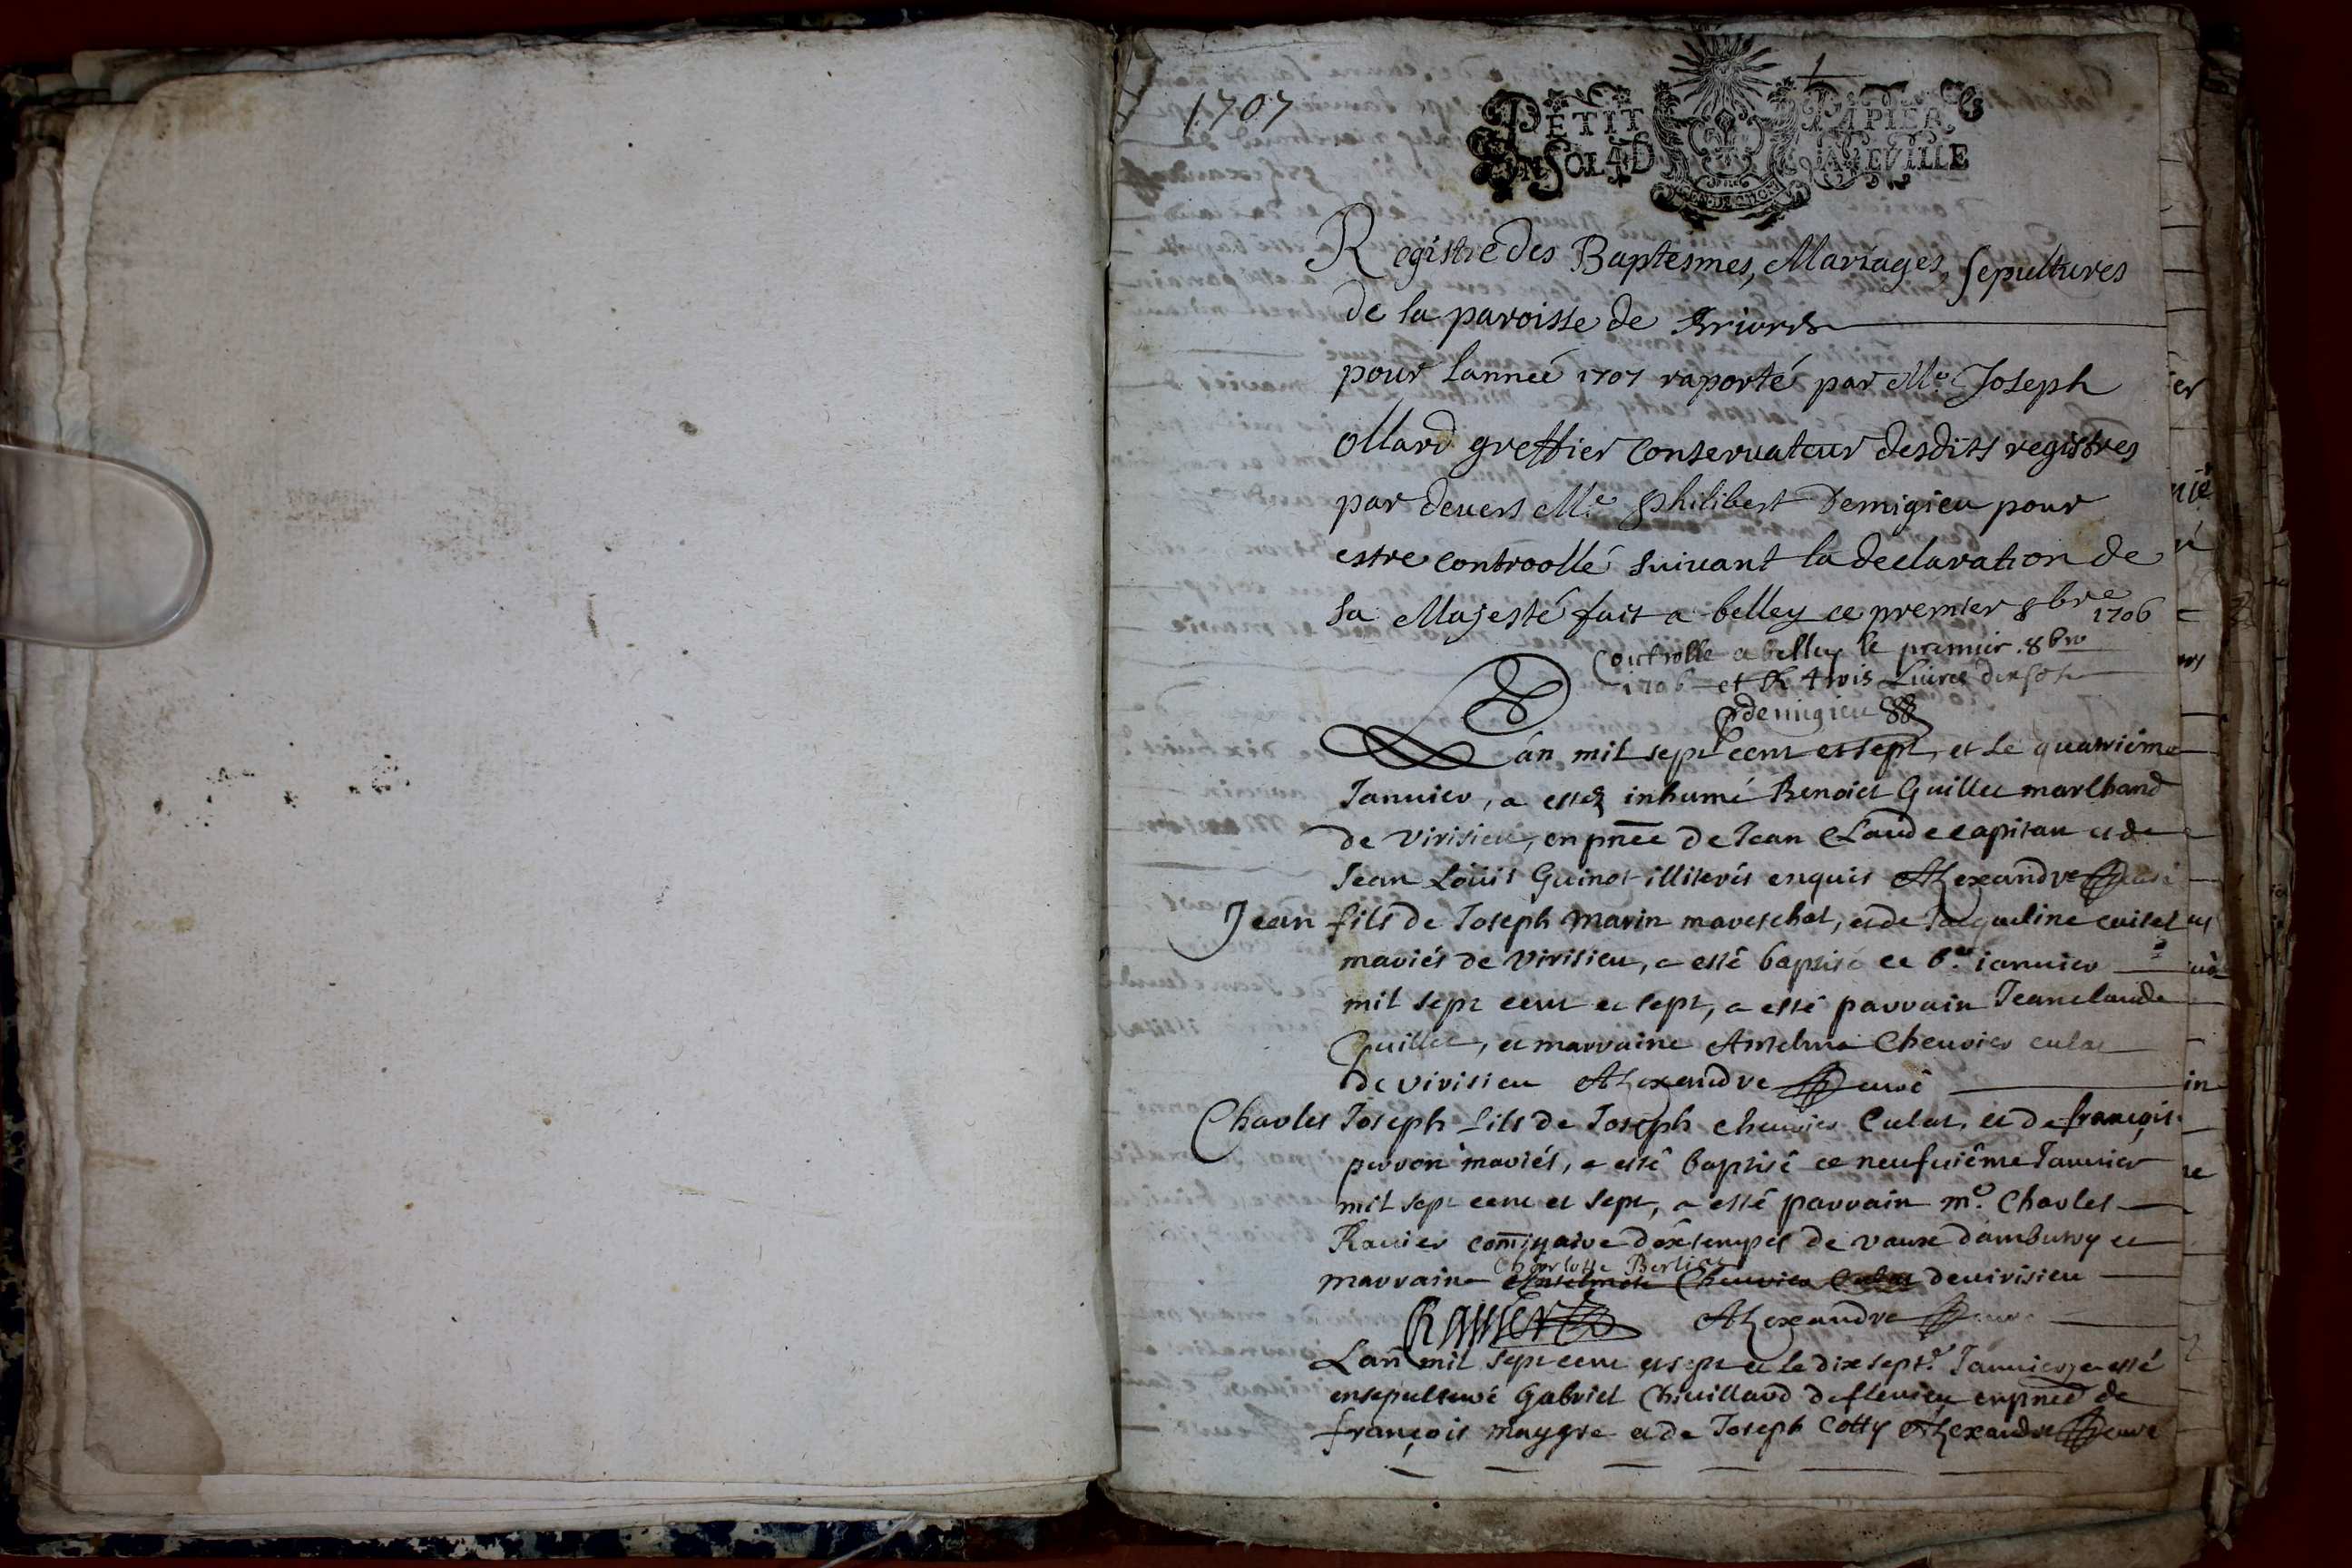 1707
PETIT PAPIER
UN SOL 4 D LA FEVILLE
Registre des Baptesmes, Mariages, Sepultures
de la paroisse de Briord
pour lannéé 1707 raporté par Me Joseph
ollard greffier Conseruateur desdits registres
par deuers Me Philibert Demigieu pour
estre controollé suiuant la declaration de
sa Majesté fait a belley ce premier 8bre 1706
Controlle a belley le premier 8bre
1706 et trois Liures
demigieu
Lán mil sept cent et sept, et le quatriéme
Januier, a esté inhumé Benoict Guillet marchand
de Virisieu, en pnce de Jean Claude capitan et de
Jean Loüis Guinot illiterés enquis Alexandre curé
Jean fils de Joseph Marin mareschal, et de Jacqueline cuilet
mariés de Virisieu, a esté baptisé ce 6e ianuier
mil sept cent et sept, a esté parrain Jeanclaude
Guillet, et marraine Anselme Cheurier culat
de virisieu Alexandre curé
Charles Joseph fils de Joseph cheurier Culat, et de françoise
perron mariés, a esté baptisé ce neufuiéme Januier
mil sept cent et sept, a esté parrain me. Charles
Rauier de vaux dambury et
Charlotte Berlier
marraine Anselmete Cheurier Culat de virisieu
Rauier Alexandre curé
Lan mil sept cent et sept et le dix sept.e Januier, a esté
ensepulturé Gabriel Chuillard de fleurieu en pnce de
françois maygre et de Joseph Cotty Alexandre curé